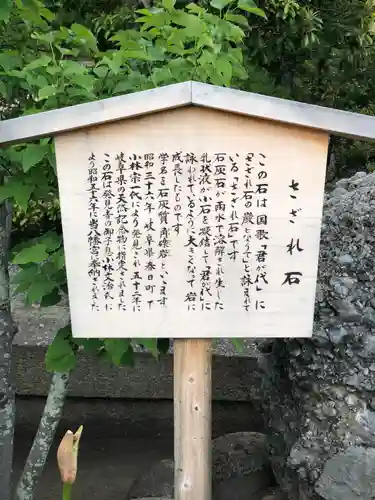 さざれ石
この石は国歌「君が代」に
「さざれ石の巌となりて」と詠まれて
いる「さざれ石」です
石灰石が雨水で溶解され生した
乳状液が小石を凝結して「君が代」に
詠われているように大きくなって岩に
成長したものです
学名を「石灰質角礫岩」といゝます
昭和三十六年、岐阜県春日町で
小林宗一代により発見され五十二年に
岐阜県の天然記念物に指定されました
この石は発見者の御子息小林文治氏に
より昭和五十六年に当八幡宮に奉納されました